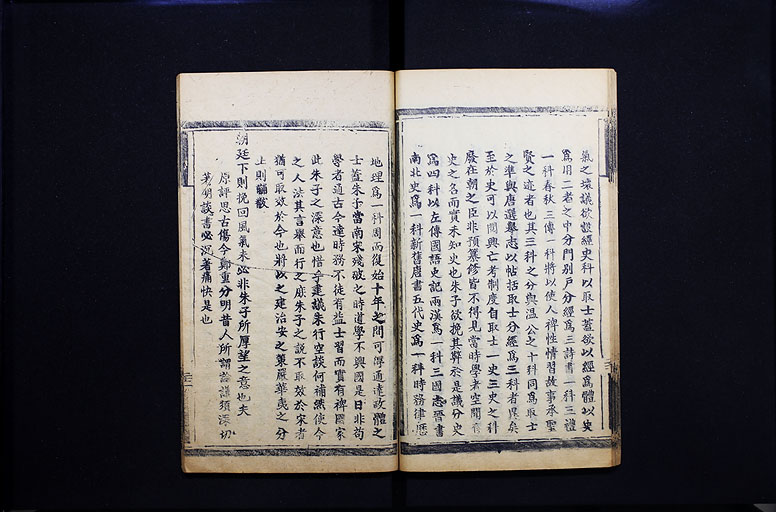 氣之壞議欲設經史科以取士蓋欲以經爲體以史
爲用二者之中分門別戶分經爲三詩書一科三禮
一科春秋三傳一科將以使人裨性情習故事承聖
賢之遺者也其三科之分與溫公之十科同爲取士
之準與唐選舉志以帖括取士分經爲三科者異矣
至於史可以開興亡考制度自取士一史三史之科
廢在朝之臣非預纂修皆不得見當時學者空聞
史之名而實未知史也朱子欲挽其弊於是議分史
爲四科以左傳國語史記兩漢爲一科三國志晉書
南北史爲一科新舊唐書五代史爲一科時務律歷
地理爲一科周而復始十年之間可得通達政體之
士蓋朱子當南宋殘破之時道學不興國是日非苟
學者通古今達時務不徒有益士習而實有裨國家
此朱子之深意也惜乎建議未行空談何補然使今
之人法其言舉而行之庶朱子之說不取效於宋者
猶可取效於今也將以之建治安之策嚴華夷之分
上則黼黻
朝廷下則挽回風氣未必非朱子所厚望之意也夫
原評思古傷今鄭重分明昔人所謂議須深切
著明談書必沉著痛快是也